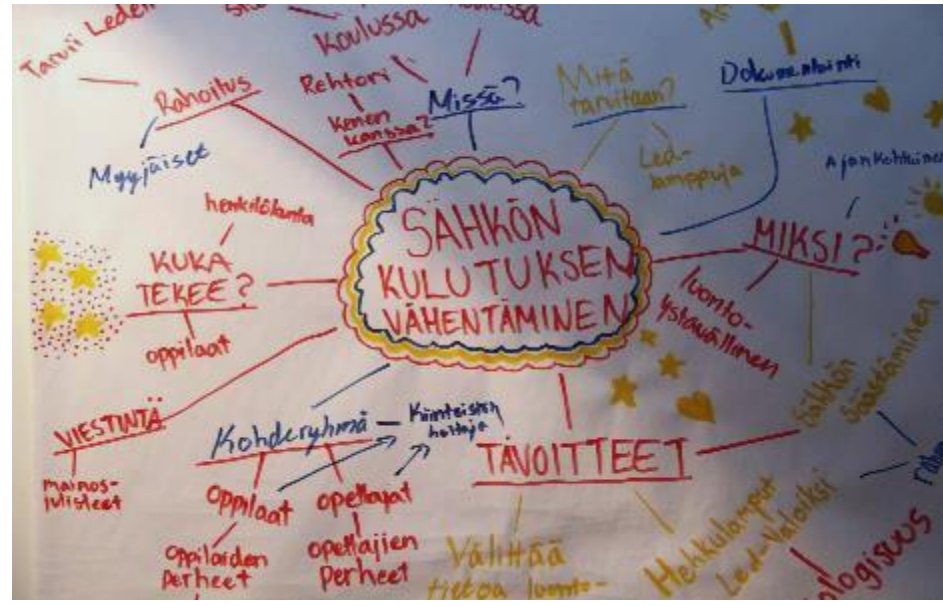 Tarvii Leden
Koulussa
Rahoitus
Myyjäiset
Rehtori
Kenen
kanssa?
Missä?
Mitä
tarvitaan?
Led-
lamppuja
Dokumentointi
Ajankohtainen
MIKSI?
luonto-
ystävällinen
Sähkön
säästäminen
henkilökunta
KUKA
TEKEE?
oppilaat
SÄHKÖN
KULUTUKSEN
VÄHENTÄMINEN
VIESTINTÄ
mainos-
julisteet
Kohderyhmä
Kiinteistön
hoitaja
oppilaat
opettajat
oppilaiden
perheet
opettajien
perheet
TAVOITTEET
Välittää
tietoa luonto-
Hehkulamput
Led-Valoiksi
ologisuus